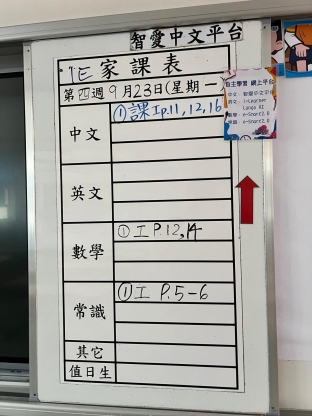 智愛中文平台
1E 家課表
第四週 9月23日(星期一)
中文 ①課工p.11,12,16
英文
數學 ①工 P.12,14
常識 ①工 P.5-6
其它
值日生
自主學習 網上平台
中文：智愛中文平台
英文：i-Learner
數學：e-Smart2.0
常識：e-Smart2.0